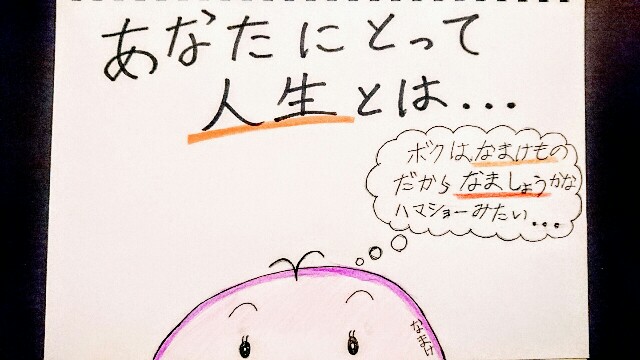 あなたにとって
人生とは...
ボクは、なまけもの
だから なましょうかな
ハマショーみたい...